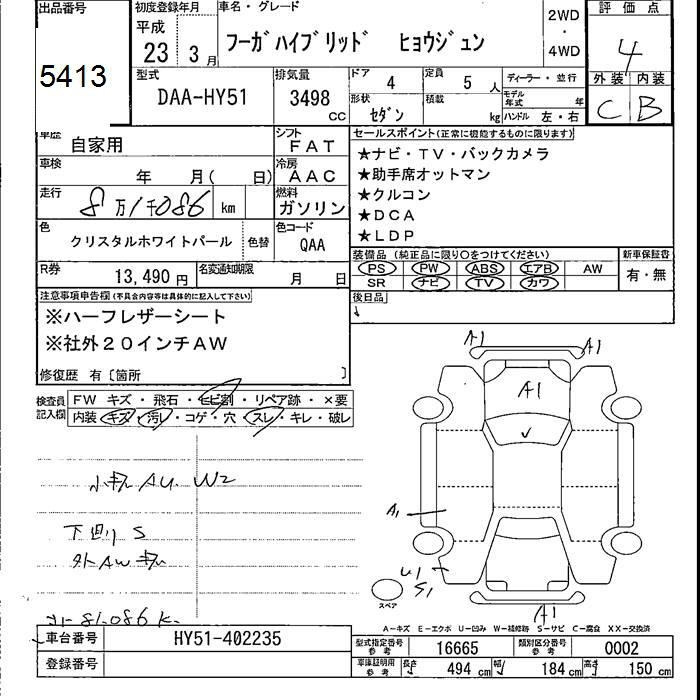 出品番号
5413
初度登録年月
平成
23 3月
車名・グレード
フーガハイブリッド ヒョウジュン
2WD
・
4WD
評価点
4
外装 内装
C B
型式
DAA-HY51
排気量
3498
cc
ドア 4
定員 5 人
ディーラー・並行
形状 セダン
積載 kg
モデル年式 年
ハンドル 左・右
車歴
自家用
シフト
FAT
車検
年 月( 日)
冷房
AAC
走行
8万1千086 km
燃料
ガソリン
色
クリスタルホワイトパール
色替
色コード
QAA
R券
13,490 円
名変通知期限
月 日
セールスポイント(正常に機能するものに限ります)
★ナビ・TV・バックカメラ
★助手席オットマン
★クルコン
★DCA
★LDP
装備品(純正品に限り○をつけてください)
PS PW ABS エアB AW
SR ナビ TV カワ
新車保証書
有・無
後日品
注意事項申告欄(不具合内容等は具体的に記入して下さい)
※ハーフレザーシート
※社外20インチAW
修復歴 有〔箇所 〕
検査員
記入欄
FW キズ・飛石・ヒビ割・リペア跡・×要
内装 キズ・汚レ・コゲ・穴・スレ・キレ・破レ
小キズ AU W2
下廻り S
外AW キズ
81,086 K
A1
A1
A1
A1
U1
S1
A1
スペア
A-キズ E-エクボ U-凹み W-補修跡 S-サビ C-腐食 XX-交換済
車台番号
HY51-402235
登録番号
型式指定番号
参考
16665
類別区分番号
参考
0002
車庫証明用
参考
長さ 494 cm
幅 184 cm
高さ 150 cm